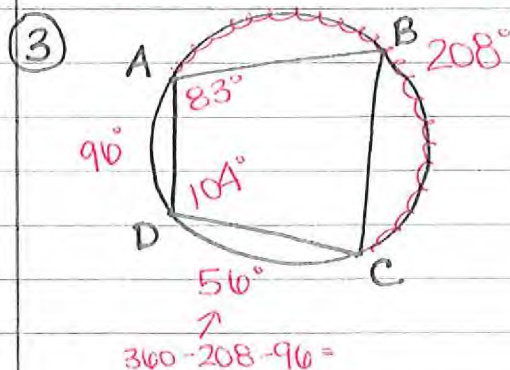 3
A
B
208°
83°
96°
104°
D
C
56°
360-208-96=